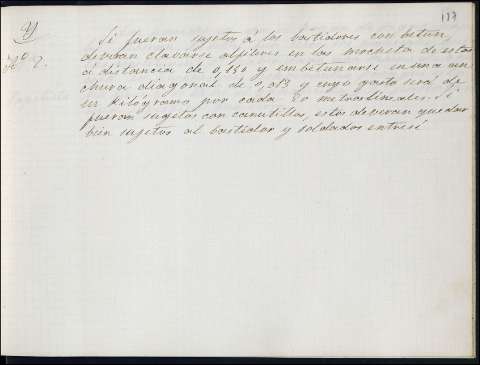 117
Y
Si fueran sujetos á los bastidores con betun,
deveran clavarse alfileres en las mochetas de estos
á distancia de 0,150 y embetunarse en una an
chura diagonal de 0,013 y cuyo gasto será de
un kilógramo por cada 20 metros lineales. Si
fueran sugetos con canutillos, estos deveran quedar
bien sujetos al bastidor y soldados entresí